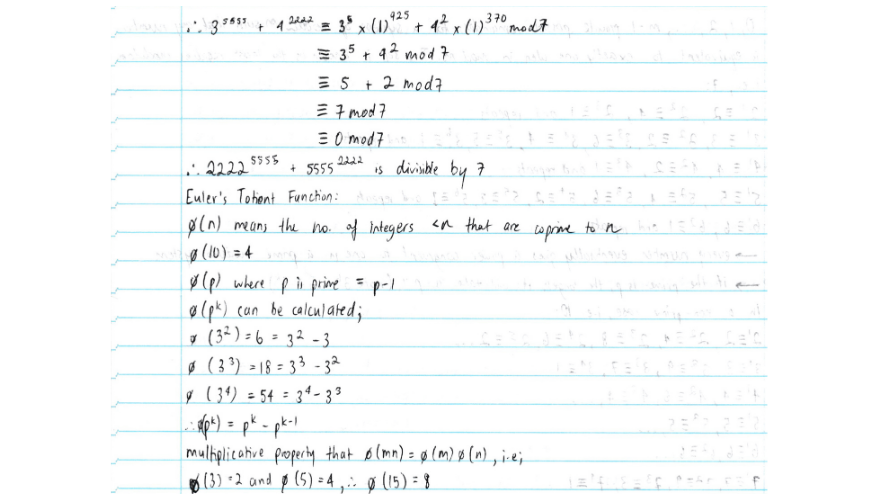 ∴ 3^5555 + 4^2222 ≡ 3^5 × (1)^925 + 4^2 × (1)^370 mod 7
≡ 3^5 + 4^2 mod 7
≡ 5 + 2 mod 7
≡ 7 mod 7
≡ 0 mod 7
∴ 2222^5555 + 5555^2222 is divisible by 7
Euler's Totient Function:
ø(n) means the no. of integers <n that are coprime to n
ø(10) = 4
ø(p) where p is prime = p-1
ø(p^k) can be calculated;
ø (3^2) = 6 = 3^2 - 3
ø (3^3) = 18 = 3^3 - 3^2
ø (3^4) = 54 = 3^4 - 3^3
∴ ø(p^k) = p^k - p^k-1
multiplicative property that ø(mn) = ø(m) ø(n), i.e;
ø(3) = 2 and ø(5) = 4, ∴ ø(15) = 8